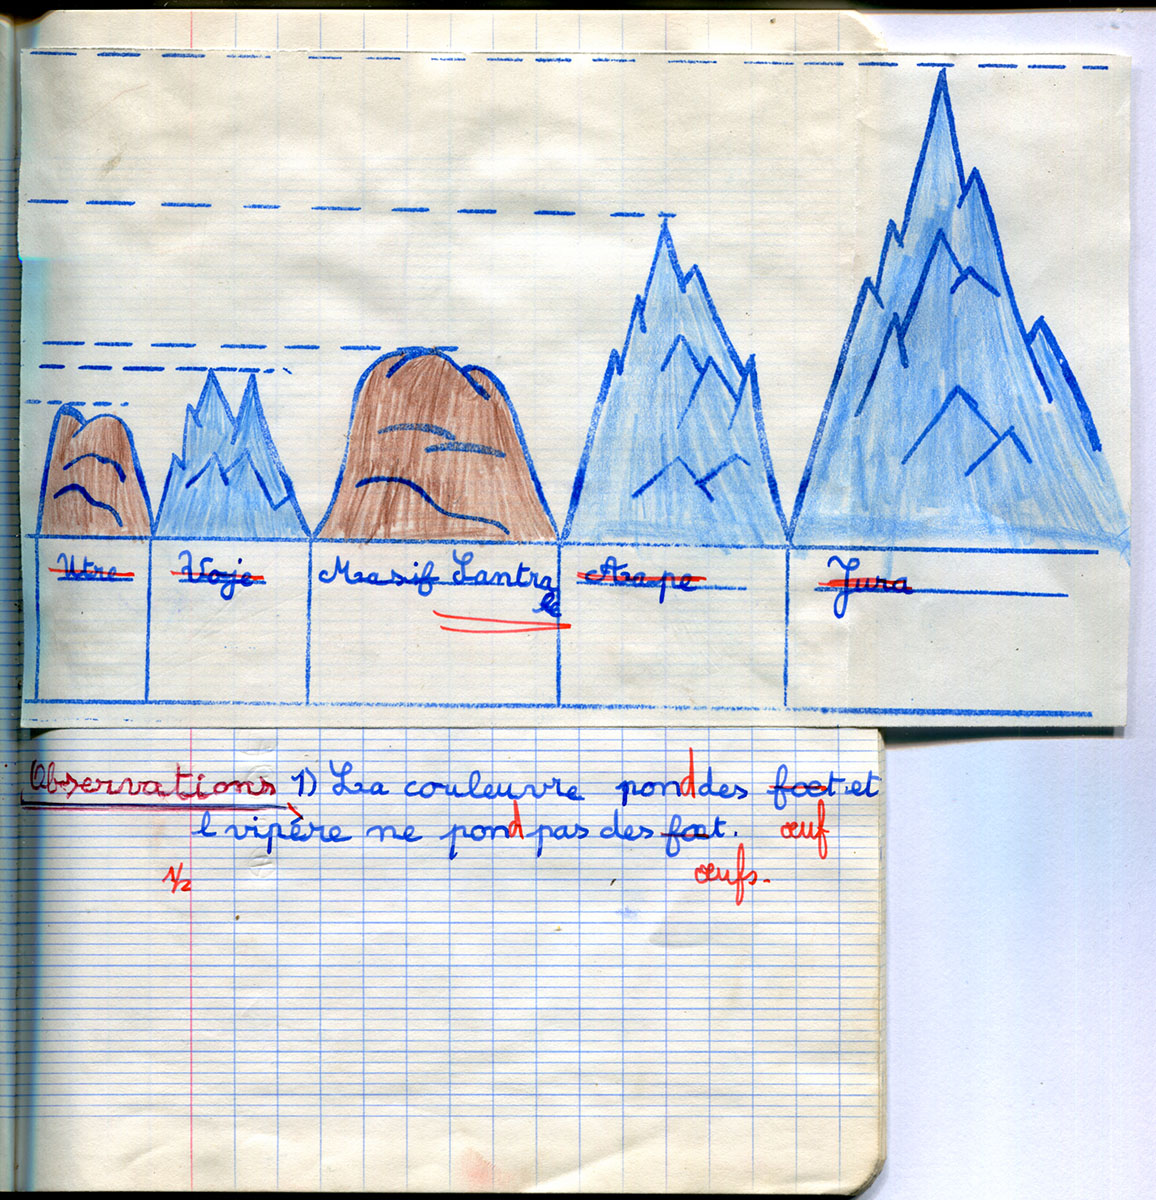 Utre Voje Massif Santra Aape Jura
le
Observations 1) La couleuvre pond des fœt et
l vipère ne pond pas des fœt. œuf
1/2 œufs.